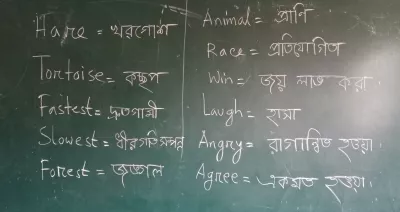 Hare = খরগোশ
Tortoise = কচ্ছপ
Fastest = দ্রুতগামী
Slowest = ধীরগতিসম্পন্ন
Forest = জঙ্গল
Animal = প্রাণি
Race = প্রতিযোগিতা
Win = জয় লাভ করা
Laugh = হাসা
Angry = রাগান্বিত হওয়া।
Agree = একমত হওয়া।